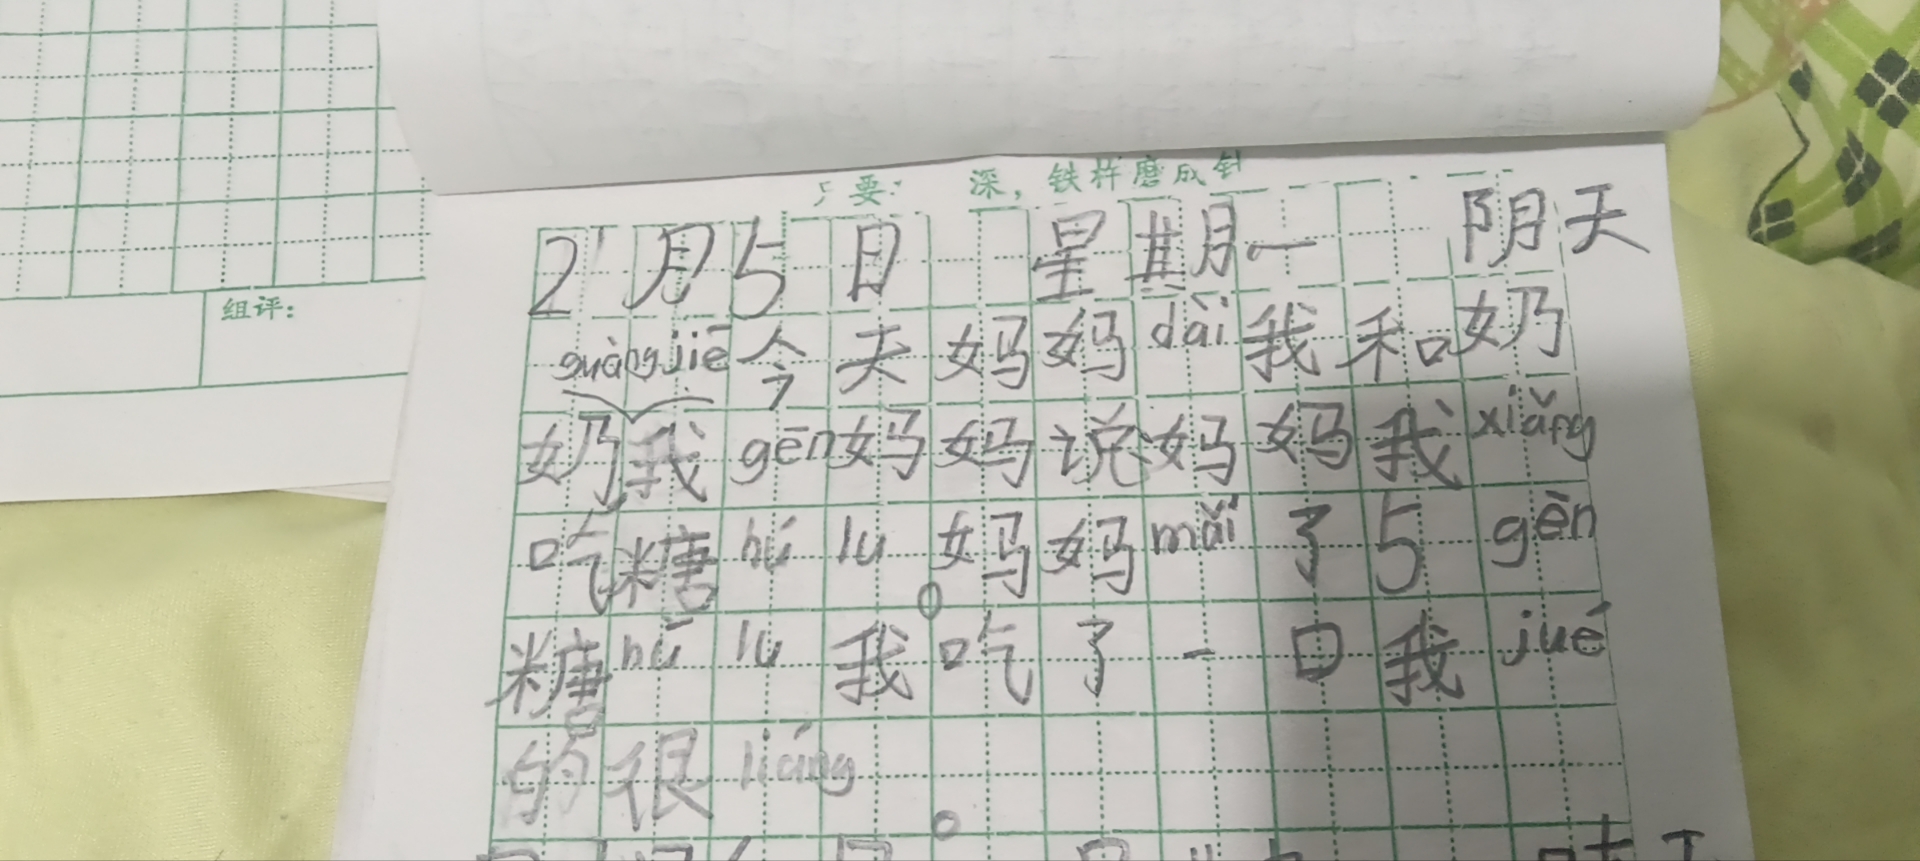 组评：
深，铁杵磨成针
2月5日 星期一 阴天
guàng jiē 今天妈妈dài我和奶
奶我gēn妈妈说妈妈我xiǎng
吃糖hú lu。妈妈mǎi了5gēn
糖hú lu我吃了一口我jué
的很liáng。